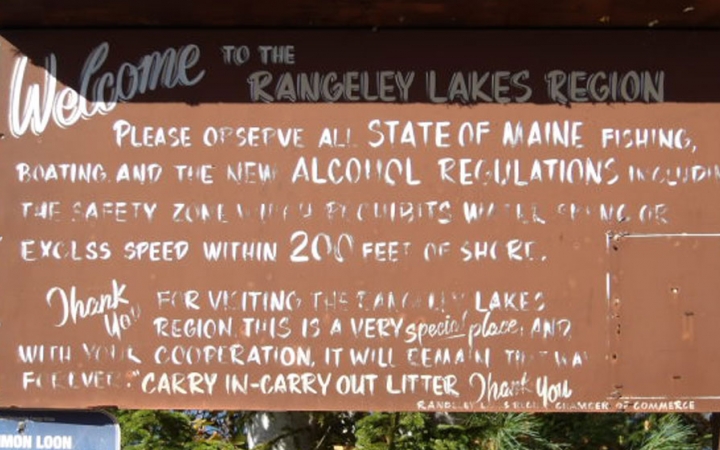 Welcome TO THE
RANGELEY LAKES REGION
PLEASE OBSERVE ALL STATE OF MAINE FISHING,
BOATING AND THE NEW ALCOHOL REGULATIONS INCLUDIN
THE SAFETY ZONE WHICH PROHIBITS WATER SKIING OR
EXCESS SPEED WITHIN 200 FEET OF SHORE.
Thank You FOR VISITING THE RANGELEY LAKES
REGION. THIS IS A VERY special place, AND
WITH YOUR COOPERATION, IT WILL REMAIN THAT WA
FOREVER. CARRY IN-CARRY OUT LITTER Thank you
RANGELEY LAKES REGION CHAMBER OF COMMERCE
MON LOON